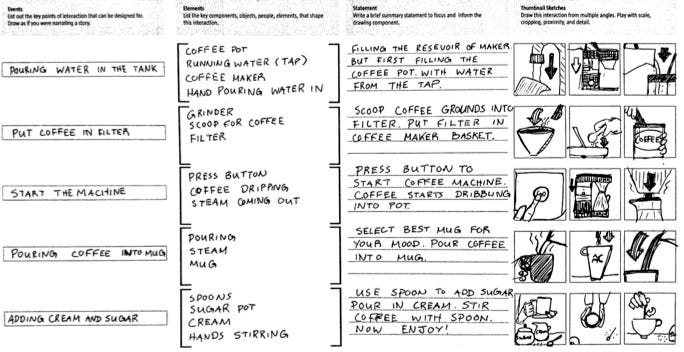 Events
List out the key points of interaction that can be designed for.
Draw as if you were narrating a story.
Elements
List the key components, objects, people, elements, that shape
this interaction.
Statement
Write a brief summary statement to focus and inform the
drawing component.
Thumbnail Sketches
Draw this interaction from multiple angles. Play with scale,
cropping, proximity, and detail.
POURING WATER IN THE TANK
COFFEE POT
RUNNING WATER (TAP)
COFFEE MAKER
HAND POURING WATER IN
FILLING THE RESEVOIR OF MAKER
BUT FIRST FILLING THE
COFFEE POT. WITH WATER
FROM THE TAP.
PUT COFFEE IN FILTER
GRINDER
SCOOP FOR COFFEE
FILTER
SCOOP COFFEE GROUNDS INTO
FILTER. PUT FILTER IN
COFFEE MAKER BASKET.
COFFEE
START THE MACHINE
PRESS BUTTON
COFFEE DRIPPING
STEAM COMING OUT
PRESS BUTTON TO
START COFFEE MACHINE.
COFFEE STARTS DRIBBLING
INTO POT.
POURING COFFEE INTO MUG
POURING
STEAM
MUG
SELECT BEST MUG FOR
YOUR MOOD. POUR COFFEE
INTO MUG.
AC
ADDING CREAM AND SUGAR
SPOONS
SUGAR POT
CREAM
HANDS STIRRING
USE SPOON TO ADD SUGAR
POUR IN CREAM. STIR
COFFEE WITH SPOON.
NOW ENJOY!